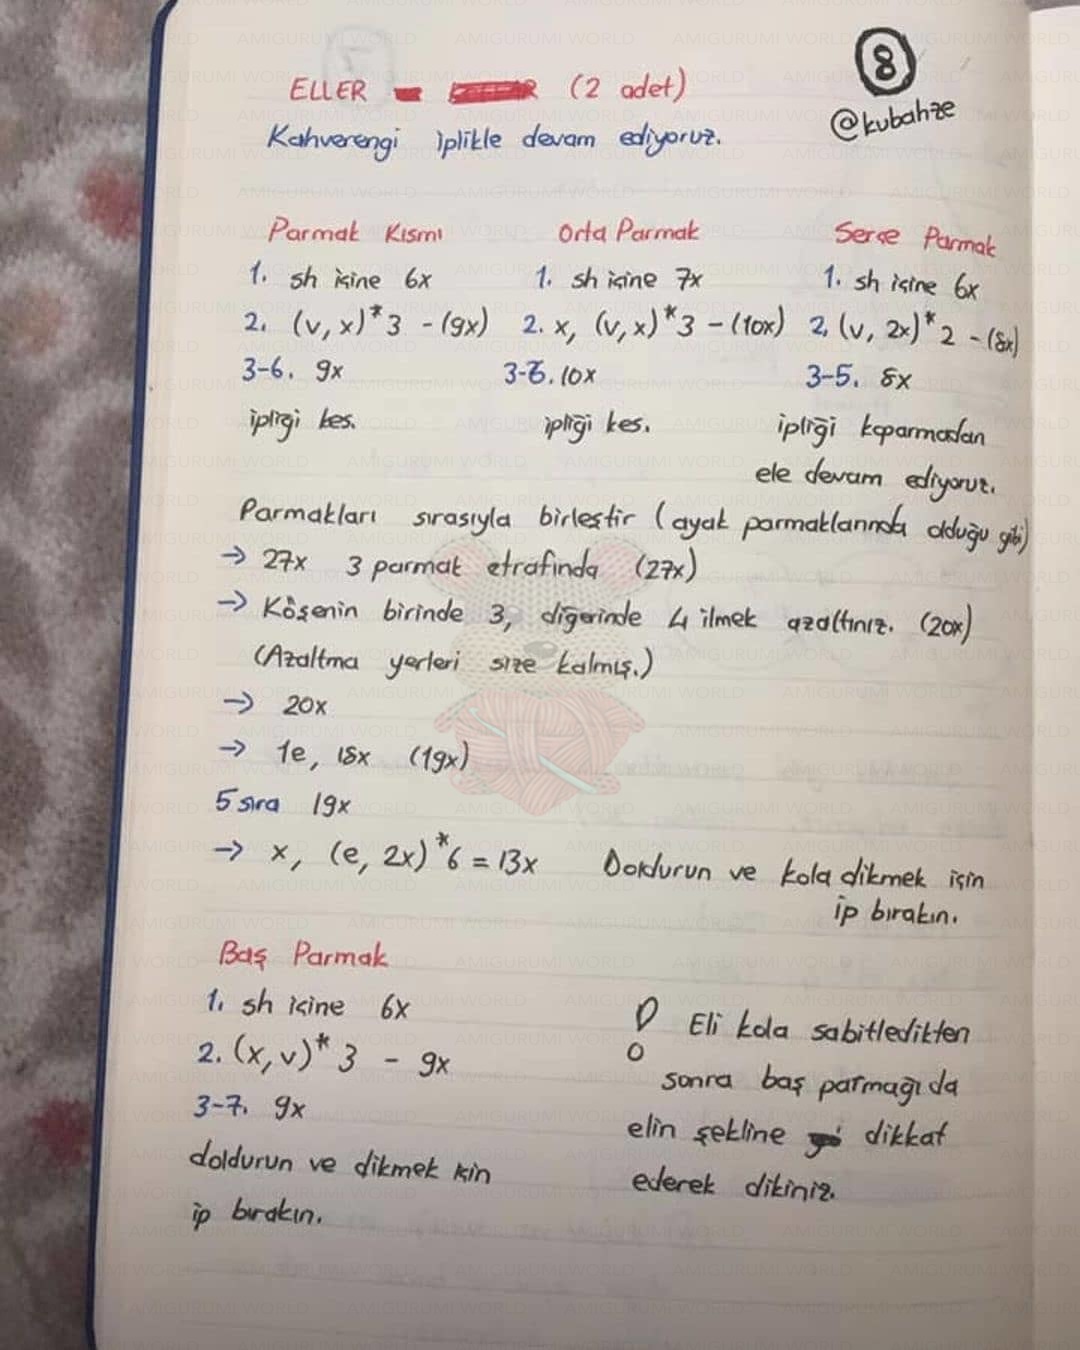 8
@kubahze
ELLER (2 adet)
Kahverengi iplikle devam ediyoruz.
Parmak Kısmı
1. sh içine 6x
2. (v, x)*3 - (9x)
3-6. 9x
ipliği kes.
Orta Parmak
1. sh içine 7x
2. x, (v, x)*3 - (10x)
3-6. 10x
ipliği kes.
Serçe Parmak
1. sh içine 6x
2. (v, 2x)*2 - (8x)
3-5. 8x
ipliği koparmadan
ele devam ediyoruz.
Parmakları sırasıyla birleştir (ayak parmaklarında olduğu gibi)
→ 27x 3 parmak etrafında (27x)
→ Köşenin birinde 3, diğerinde 4 ilmek azaltınız. (20x)
(Azaltma yerleri size kalmış.)
→ 20x
→ 1e, 18x (19x)
5 sıra 19x
→ x, (e, 2x)*6 = 13x
Doldurun ve kola dikmek için
ip bırakın.
Baş Parmak
1. sh içine 6x
2. (x, v)*3 - 9x
3-7. 9x
doldurun ve dikmek için
ip bırakın.
! Eli kola sabitledikten
sonra baş parmağı da
elin şekline dikkat
ederek dikiniz.
AMIGURUMI WORLD